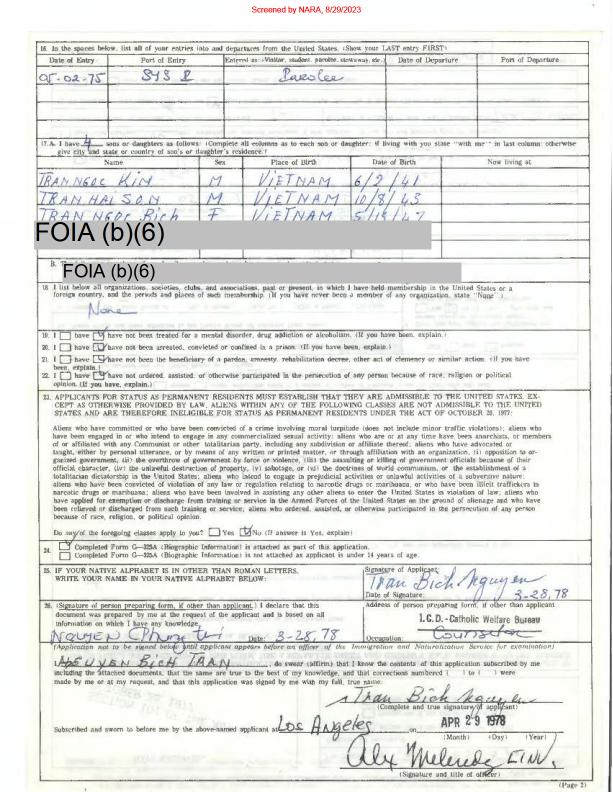 Screened by NARA, 8/29/2023
16. In the spaces below, list all of your entries into and departures from the United States. (Show your LAST entry FIRST)
Date of Entry Port of Entry Entered as: (Visitor, student, parolee, stowaway, etc.) Date of Departure Port of Departure
05-02-75 SYS Parolee
17. A. I have 4 sons or daughters as follows: (Complete all columns as to each son or daughter; if living with you state "with me" in last column; otherwise
give city and state or country of son's or daughter's residence.)
Name Sex Place of Birth Date of Birth Now living at
TRAN NGOC KIM M VIETNAM 6/2/41
TRAN HAI SON M VIETNAM 10/8/43
TRAN NGOC Bich F VIETNAM
FOIA (b)(6)
B.
FOIA (b)(6)
18. I list below all organizations, societies, clubs, and associations, past or present, in which I have held membership in the United States or a
foreign country, and the periods and places of such membership. (If you have never been a member of any organization, state "None".)
None
19. I have have not been treated for a mental disorder, drug addiction or alcoholism. (If you have, explain.)
20. I have have not been arrested, convicted or confined in a prison. (If you have, explain.)
21. I have have not been the beneficiary of a pardon, amnesty, rehabilitation decree, other act of clemency or similar action. (If you have
been, explain.)
22. I have have not ordered, assisted, or otherwise participated in the persecution of any person because of race, religion or political
opinion. (If you have, explain.)
23. APPLICANTS FOR STATUS AS PERMANENT RESIDENTS MUST ESTABLISH THAT THEY ARE ADMISSIBLE TO THE UNITED STATES. EX-
CEPT AS OTHERWISE PROVIDED BY LAW, ALIENS WITHIN ANY OF THE FOLLOWING CLASSES ARE NOT ADMISSIBLE TO THE UNITED
STATES AND ARE THEREFORE INELIGIBLE FOR STATUS AS PERMANENT RESIDENTS UNDER THE ACT OF OCTOBER 28, 1977:
Aliens who have committed or who have been convicted of a crime involving moral turpitude (does not include minor traffic violations); aliens who
have been engaged in or who intend to engage in any commercialized sexual activity; aliens who are or at any time have been anarchists, or members
of or affiliated with any Communist or other totalitarian party, including any subdivision or affiliate thereof; aliens who have advocated or
taught, either by personal utterance, or by means of any written or printed matter, or through affiliation with an organization, (i) opposition to or-
ganized government, (ii) the overthrow of government by force or violence, (iii) the assaulting or killing of government officials because of their
official character, (iv) the unlawful destruction of property, (v) sabotage, or (vi) the doctrines of world communism, or the establishment of a
totalitarian dictatorship in the United States; aliens who intend to engage in prejudicial activities or unlawful activities of a subversive nature;
aliens who have been convicted of violation of any law or regulation relating to narcotic drugs or marihuana, or who have been illicit traffickers in
narcotic drugs or marihuana; aliens who have been involved in assisting any other aliens to enter the United States in violation of law; aliens who
have applied for exemption or discharge from training or service in the Armed Forces of the United States on the ground of alienage and who have
been relieved or discharged from such training or service; aliens who ordered, assisted, or otherwise participated in the persecution of any person
because of race, religion, or political opinion.
Do any of the foregoing classes apply to you? Yes No (If answer is Yes, explain)
24. Completed Form G-325A (Biographic Information) is attached as part of this application.
Completed Form G-325A (Biographic Information) is not attached as applicant is under 14 years of age.
25. IF YOUR NATIVE ALPHABET IS IN OTHER THAN ROMAN LETTERS,
WRITE YOUR NAME IN YOUR NATIVE ALPHABET BELOW:
Signature of Applicant:
Tran Bich Nguyen
Date of Signature: 3-28, 78
26. (Signature of person preparing form, if other than applicant.) I declare that this
document was prepared by me at the request of the applicant and is based on all
information on which I have any knowledge.
NGUYEN Date: 3-28, 78
Address of person preparing form, if other than applicant
I.C.D. -Catholic Welfare Bureau
Occupation: Counselor
(Application not to be signed below until applicant appears before an officer of the Immigration and Naturalization Service for examination)
I, NGUYEN BICH TRAN, do swear (affirm) that I know the contents of this application subscribed by me
including the attached documents, that the same are true to the best of my knowledge, and that corrections numbered ( ) to ( ) were
made by me or at my request, and that this application was signed by me with my full, true name:
Tran Bich Nguyen
(Complete and true signature of applicant)
Subscribed and sworn to before me by the above-named applicant at Los Angeles on APR 29 1978
(Month) (Day) (Year)
(Signature and title of officer)
(Page 2)